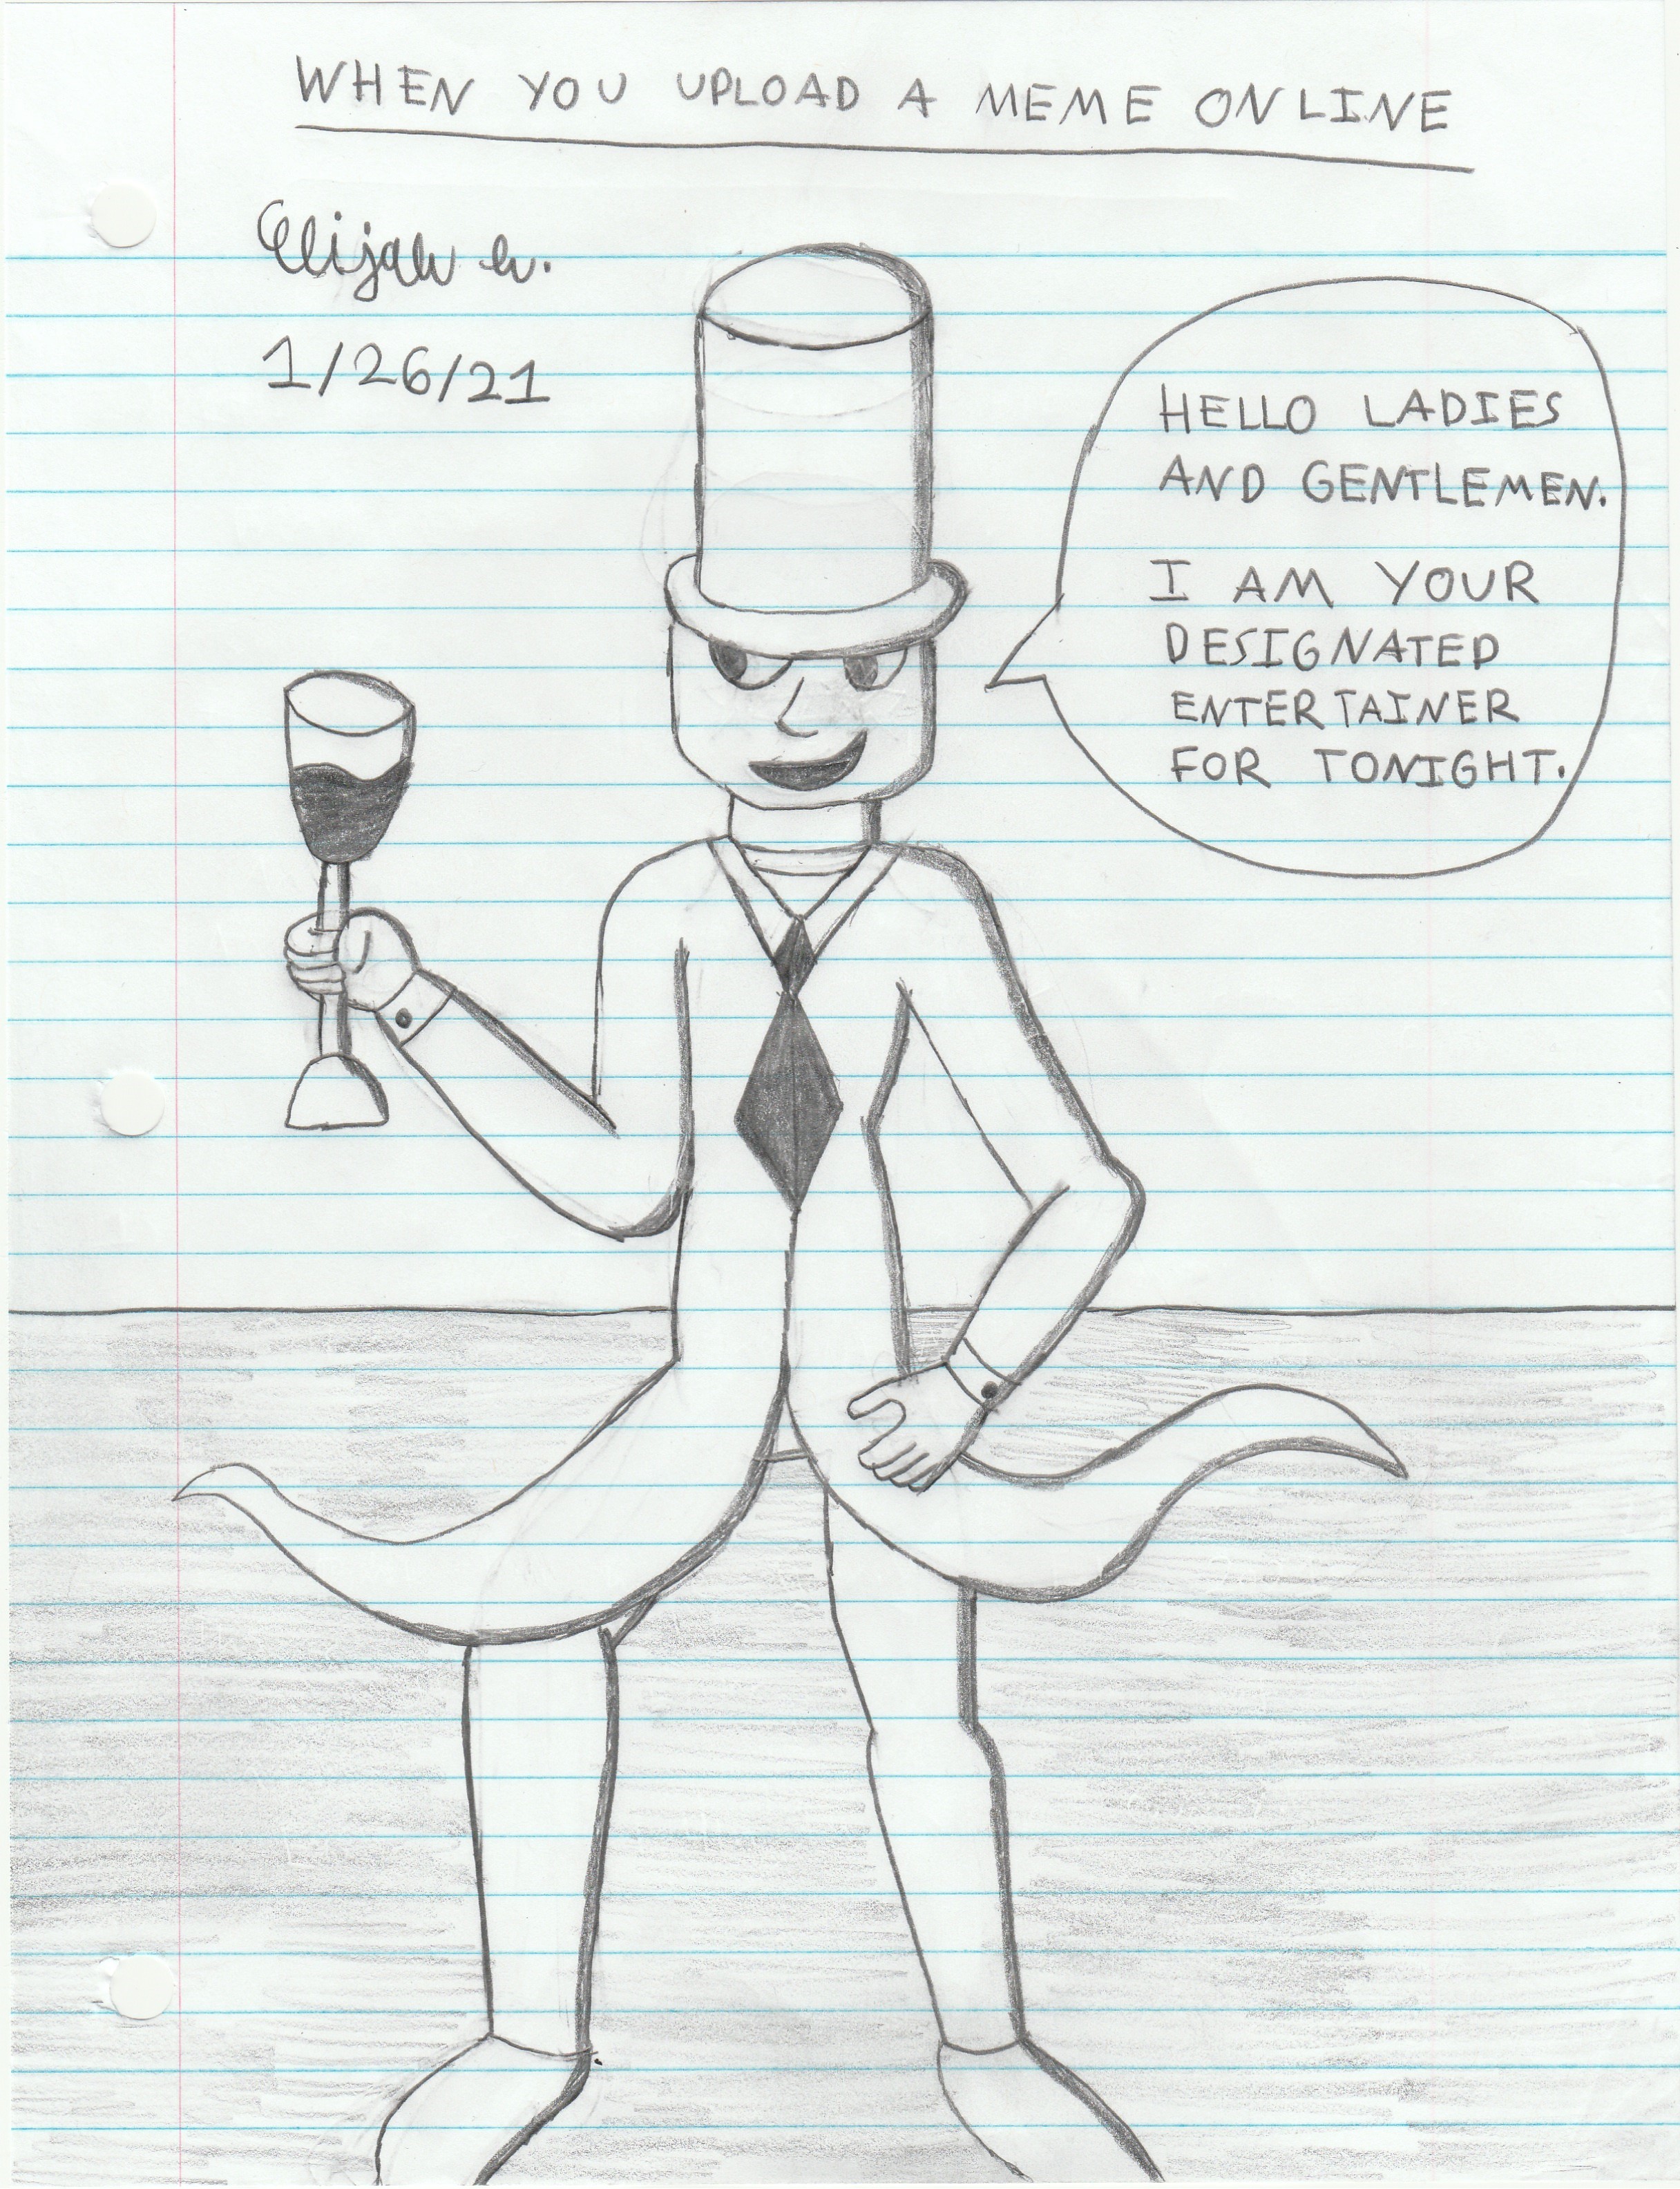 WHEN YOU UPLOAD A MEME ONLINE
Elijah
1/26/21
HELLO LADIES
AND GENTLEMEN.
I AM YOUR
DESIGNATED
ENTERTAINER
FOR TONIGHT.